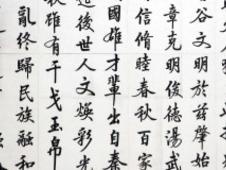 谷文明於茲肇始
章克明俊德湯武
信脩睦春秋百家
國雄才輩出自秦
後世人文煥彩光
雖有干戈玉帛
亂終歸民族融和